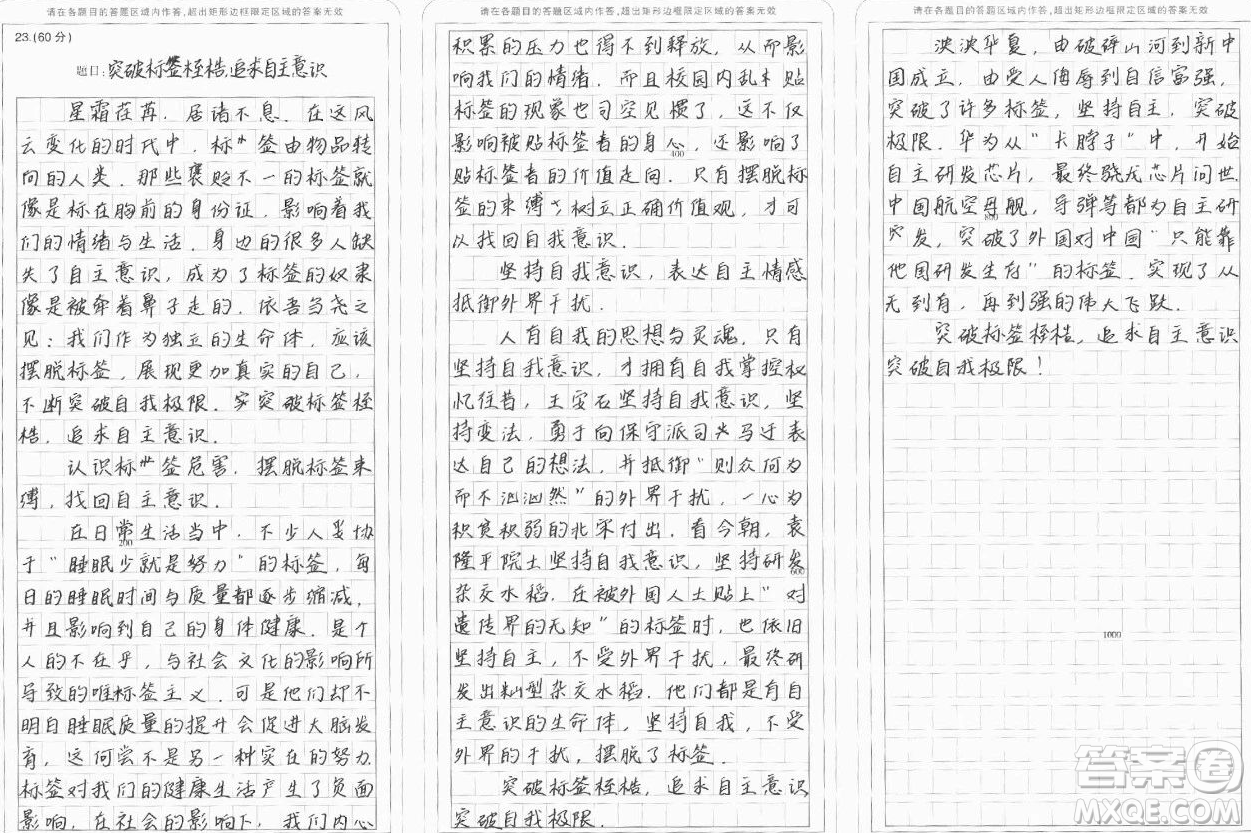 请在各题目的答题区域内作答,超出矩形边框限定区域的答案无效
23.(60 分)
题目:突破标签桎梏,追求自主意识
星霜荏苒,居诸不息。在这风
云变化的时代中,标签由物品转
向的人类。那些褒贬不一的标签就
像是标在胸前的身份证,影响着我
们的情绪与生活。身边的很多人缺
失了自主意识,成为了标签的奴隶
像是被牵着鼻子走的。依吾刍尧之
见:我们作为独立的生命体,应该
摆脱标签,展现更加真实的自己,
不断突破自我极限。突破标签桎
梏,追求自主意识.
认识标签危害.摆脱标签束
缚,找回自主意识.
在日常生活当中,不少人妥协
200
于"睡眠少就是努力"的标签,每
日的睡眠时间与质量都逐步缩减,
并且影响到自己的身体健康.是个
人的不在乎,与社会文化的影响所
导致的唯标签主义.可是他们却不
明白睡眠质量的提升会促进大脑发
育,这何尝不是另一种实在的努力.
标签对我们的健康生活产生了负面
影响,在社会的影响下,我们内心
请在各题目的答题区域内作答,超出矩形边框限定区域的答案无效
积累的压力也得不到释放,从而影
响我们的情绪.而且校园内乱贴
标签的现象也司空见惯了,这不仅
影响被贴标签者的身心,还影响了
400
贴标签者的价值走向.只有摆脱标
签的束缚,树立正确价值观,才可
以找回自我意识.
坚持自我意识,表达自主情感
抵御外界干扰.
人有自我的思想与灵魂,只有
坚持自我意识,才拥有自我掌控权
忆往昔,王安石坚持自我意识,坚
持变法,勇于向保守派司马迁表
达自己的想法,并抵御"则众何为
而不汹汹然"的外界干扰,一心为
积贫积弱的北宋付出.看今朝,袁
隆平院士坚持自我意识,坚持研发
600
杂交水稻.在被外国人士贴上"对
遗传界的无知"的标签时,也依旧
坚持自主,不受外界干扰,最终研
发出籼型杂交水稻.他们都是有自
主意识的生命体,坚持自我,不受
外界的干扰,摆脱了标签.
突破标签桎梏,追求自主意识
突破自我极限.
请在各题目的答题区域内作答,超出矩形边框限定区域的答案无效
泱泱华夏,由破碎山河到新中
国成立,由受人侮辱到自信富强,
突破了许多标签,坚持自主,突破
极限.华为从"卡脖子"中,开始
自主研发芯片,最终骁龙芯片问世.
中国航空母舰,导弹等都为自主研
800
发,突破了外国对中国"只能靠
他国研发生存"的标签.实现了从
无到有,再到强的伟大飞跃.
突破标签桎梏,追求自主意识
突破自我极限!
1000
答案圈
MXQE.COM